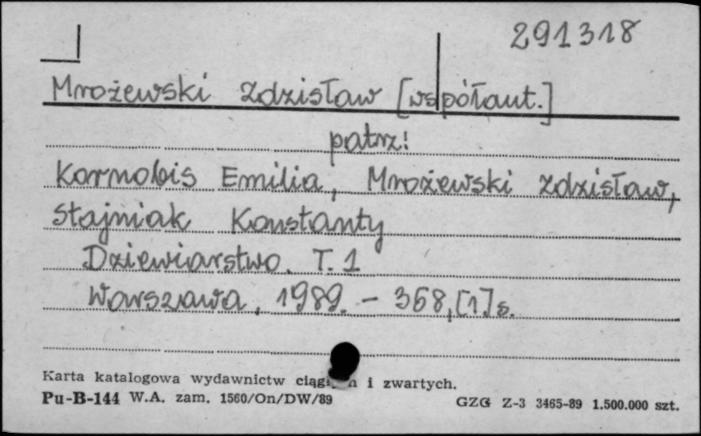 291318
Mrożewski Zdzisław [współaut.]
patrz:
Kornobis Emilia, Mrożewski Zdzisław,
Stajniak Konstanty
Dziewiarstwo. T. 1
Warszawa, 1989. - 368, [1] s.
Karta katalogowa wydawnictw i zwartych.
Pu-B-144 W.A. zam. 1560/On/DW/89
GZG Z-3 3465-89 1.500.000 szt.